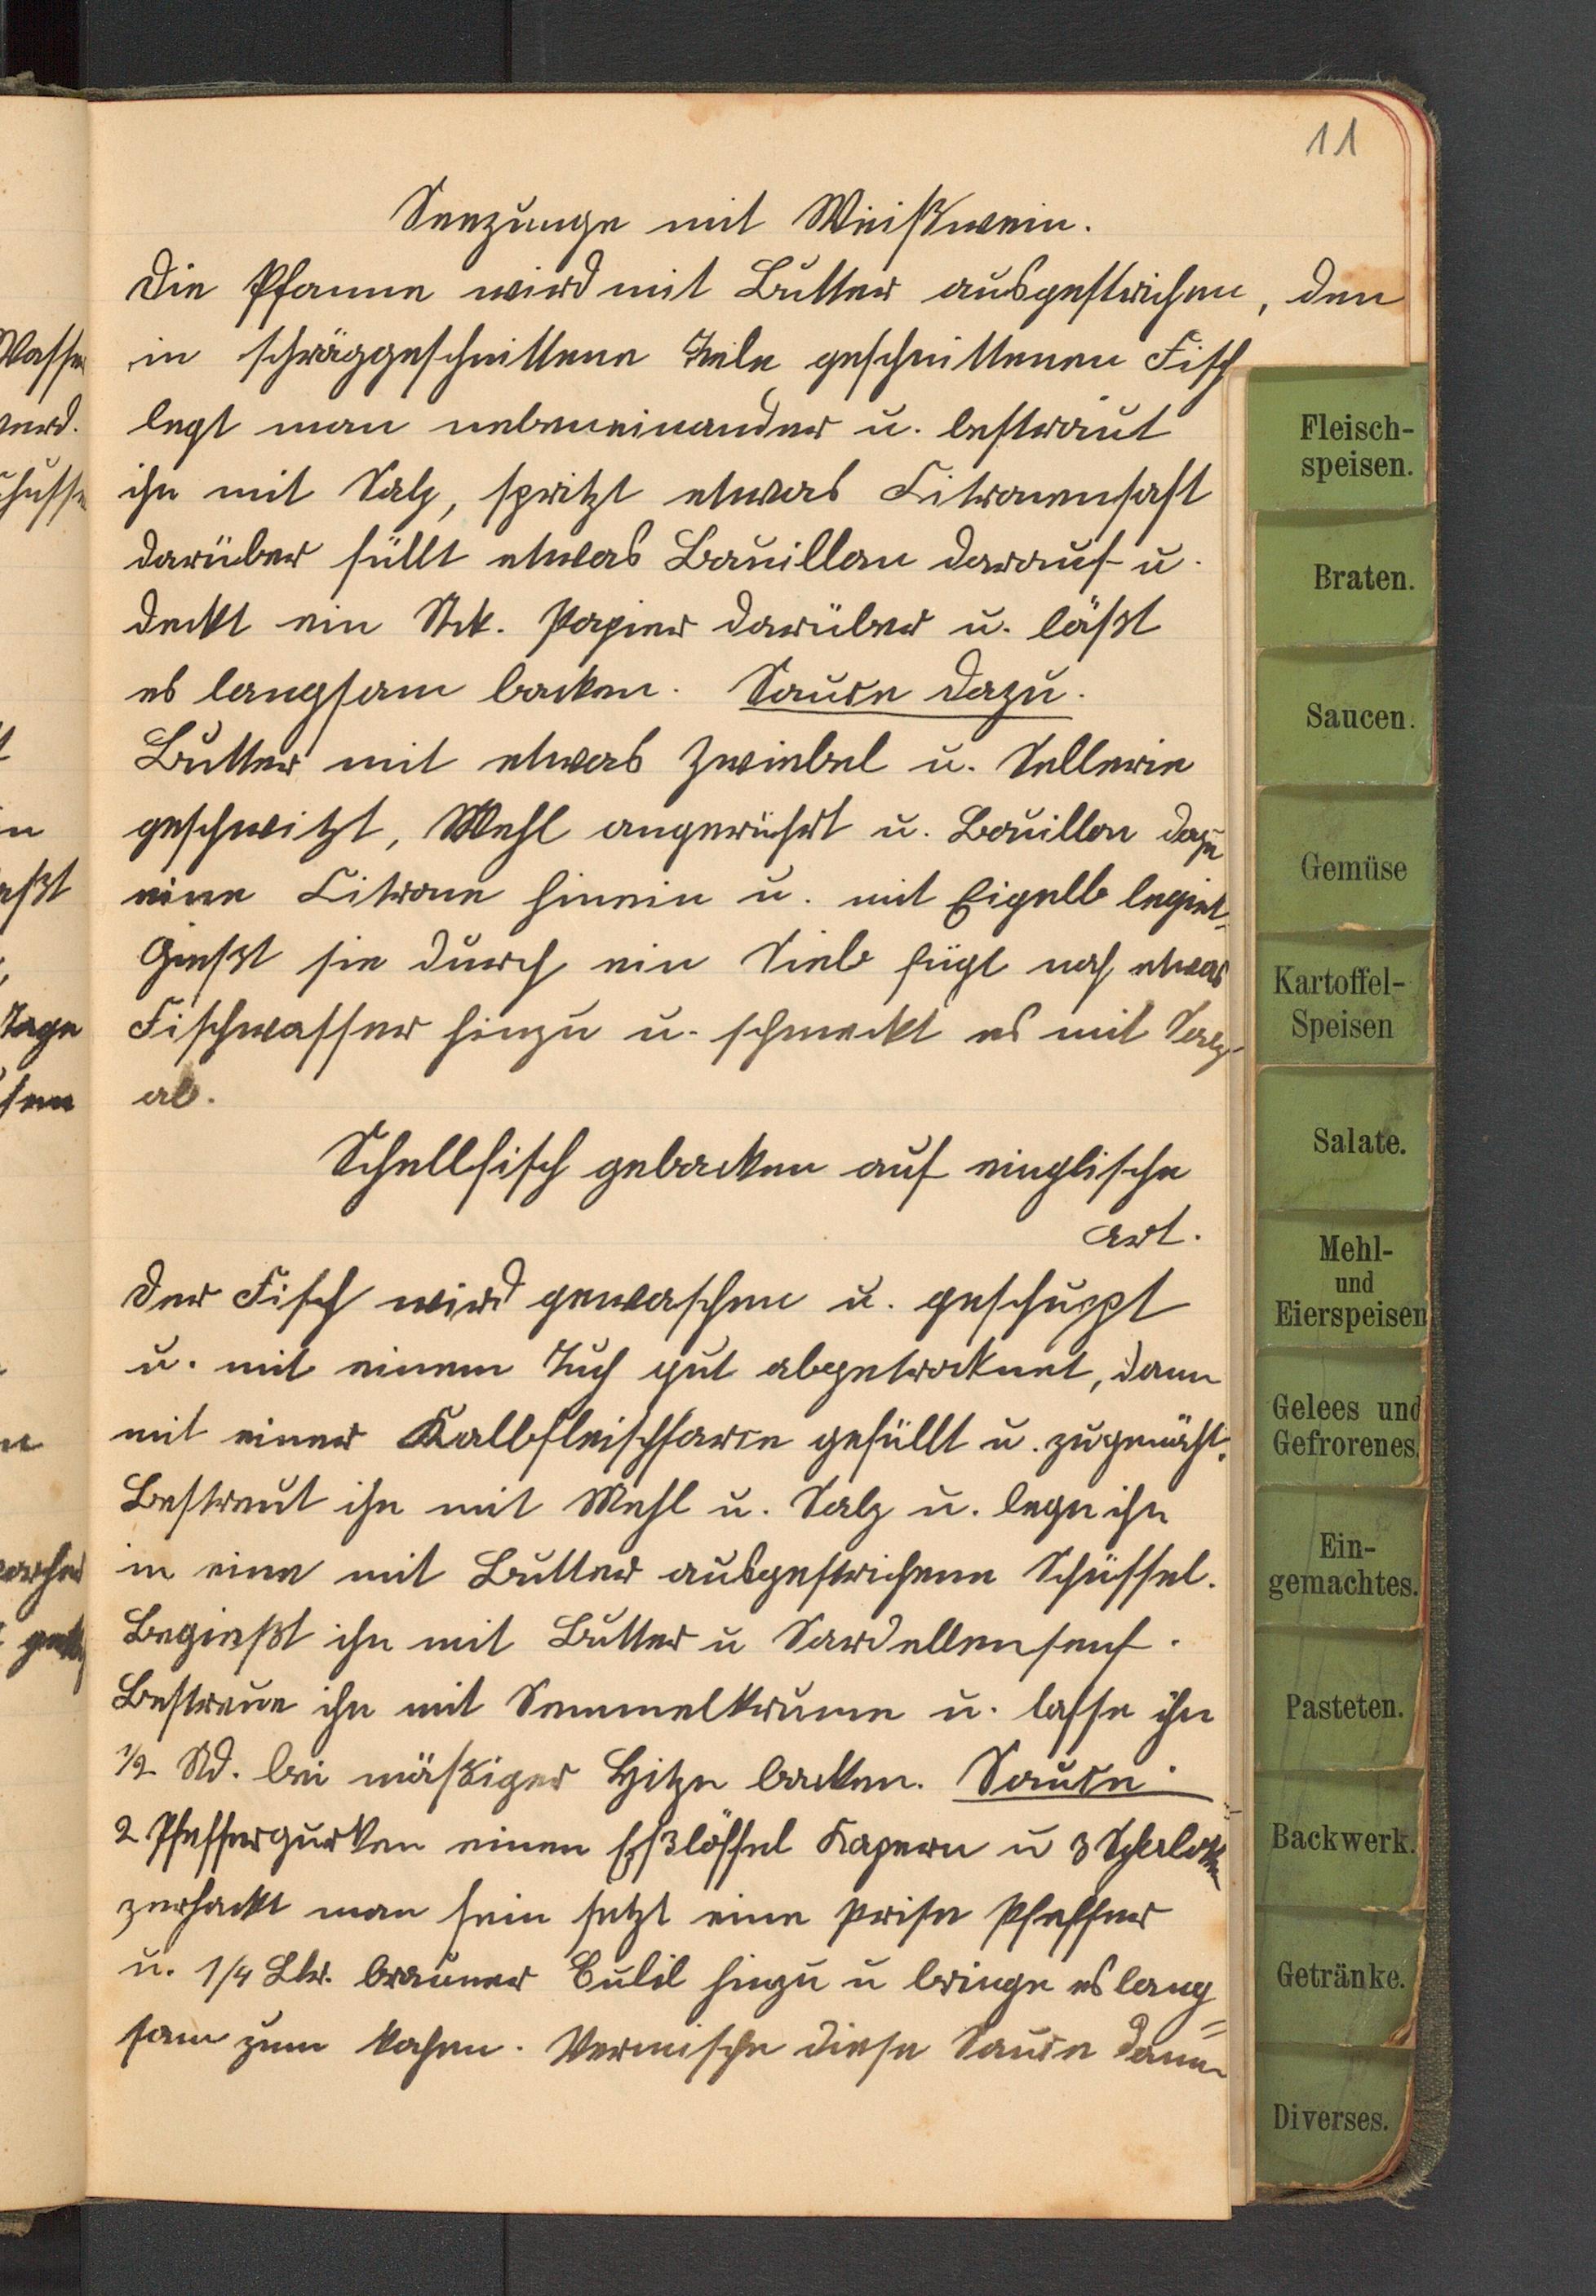 11
Seezunge mit Weißwein.
Die Pfanne wird mit Butter ausgestrichen, den
in schräggeschnittene Teile geschnittenen Fisch
legt man nebeneinander u. bestraut
ihn mit Salz, spritzt etwas Citronensaft
darüber füllt etwas Bouillon darauf u.
deckt ein Stck. Papier darüber u. läßt
es langsam backen. Sauce dazu.
Butter mit etwas Zwiebel u. Sellerie
geschwitzt, Mehl angerührt u. Bouillon dazu
eine Citrone hinein u. mit Eigelb legirt.
Gießt sie durch ein Sieb fügt noch etwas
Fischwasser hinzu u. schmeckt es mit Salz
ab.
Schellfisch gebacken auf einglische
Art.
Der Fisch wird gewaschen u. geschuppt
u. mit einem Tuch gut abgetrocknet, dann
mit einer Kalbfleischfarce gefüllt u. zugenäht.
Bestreut ihn mit Mehl u. Salz u. lege ihn
in eine mit Butter ausgestrichene Schüssel.
Begießt ihn mit Butter u Sardellensenf.
Bestreue ihn mit Semmelkrume u. lasse ihn
1/2 Std. bei mäßiger Hitze backen. Sauce.
2 Pfeffergurken einen Eßlöffel Kapern u 3 Schalotten
zerhackt man fein setzt eine Prise Pfeffer
u. 1/4 Ltr. brauner Culil hinzu u bringe es lang=
sam zum kochen. Vermische diese Sauce dann
Wasser
werd.
aßt
Tage
Fleisch-
speisen.
Braten.
Saucen.
Gemüse
Kartoffel-
Speisen
Salate.
Mehl-
und
Eierspeisen
Gelees und
Gefrorenes.
Ein-
gemachtes.
Pasteten.
Backwerk.
Getränke.
Diverses.